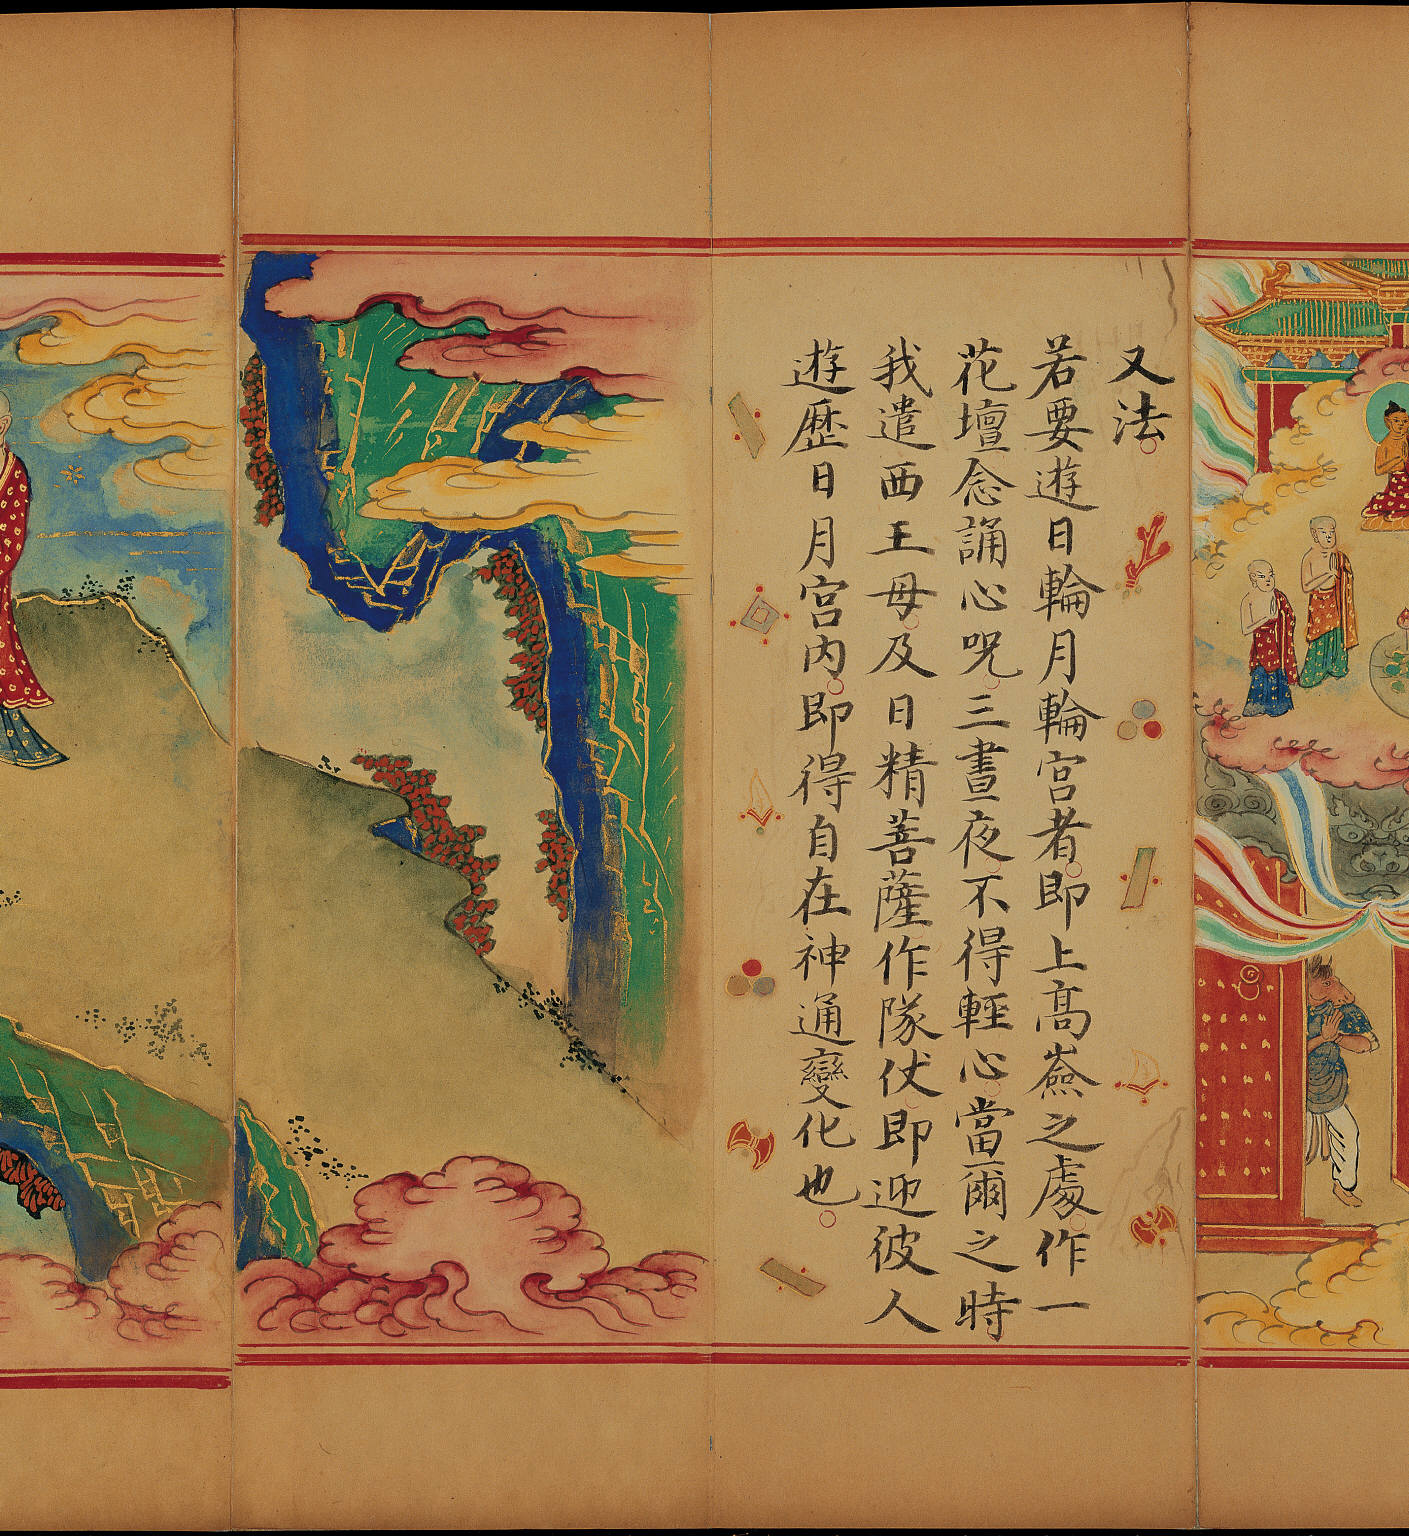 又法
若要遊日輪月輪宮者即上高嶮之處作一
花壇念誦心呪三晝夜不得輕心當爾之時
我遣西王母及日精菩薩作隊仗即迎彼人
遊歷日月宮內即得自在神通變化也